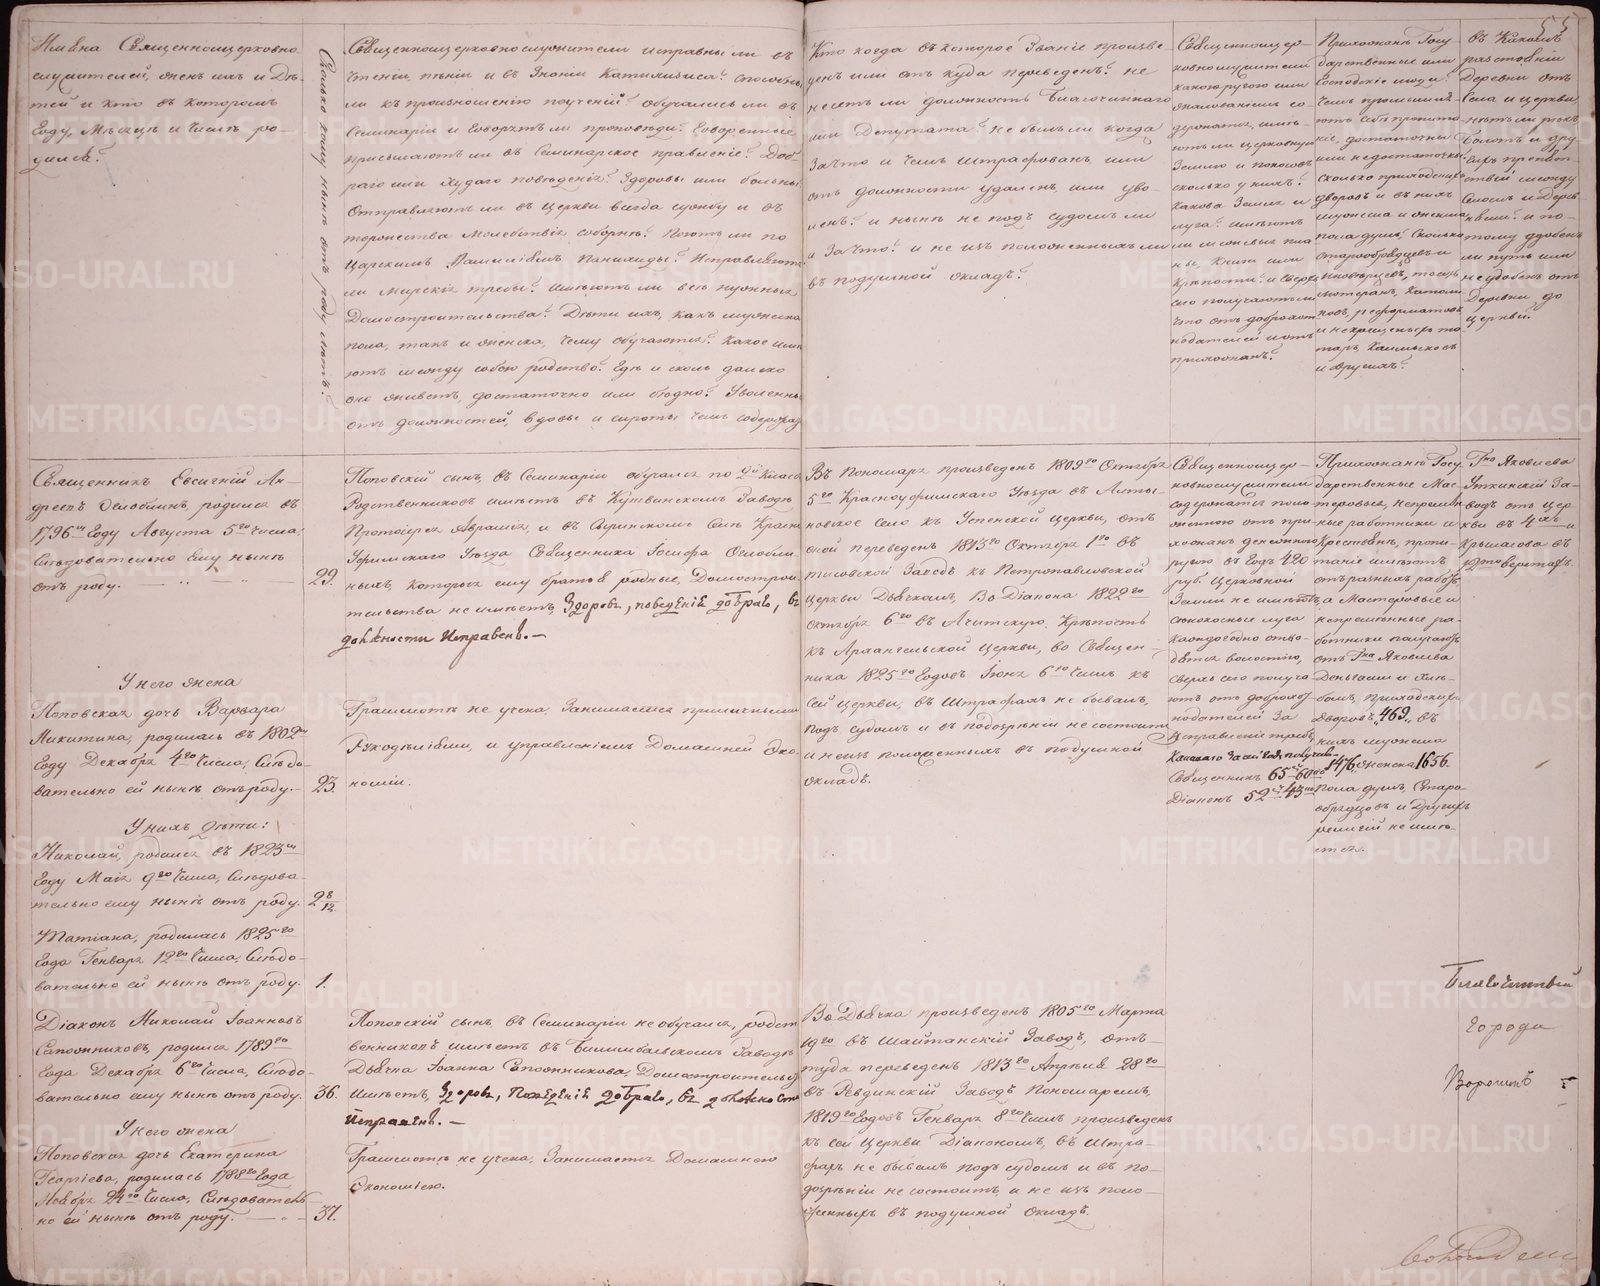 55
Имѣна Священноцерковно
служителей, женъ ихъ и Дѣ-
тей и кто въ которомъ
Году, Мѣсяцѣ и Числѣ ро-
дился?
Сколько кому нынѣ отъ роду лѣтъ?
Священноцерковнослужители исправны ли въ
Чтеніи, пѣніи и въ Знаніи Катихизиса? способны
ли къ произношенію поученій? обучались ли въ
Семинаріи и Говорятъ ли проповѣди? Говоренныя
присылаютъ ли въ Семинарское правленіе? Доб-
раго или Худаго поведенія? Здоровы или больны?
Отправляютъ ли въ Церкви всегда службу и въ
торжества Молебствія соборнѣ? Поютъ ли по
Царскимъ Фамиліямъ Панихиды? Исправляютъ
ли Мирскія требы? имѣютъ ли всѣ нужныя
Домостроительства? Дѣти ихъ, какъ мужеска
пола, такъ и женска, чему обучаются? Какое имѣ
ютъ между собою родство? Гдѣ и сколь далеко
кто живетъ, достаточно или бѣдно? Уволенны
отъ должностей, вдовы и сироты чемъ содержатся
Кто когда въ которое Званіе произве-
денъ или отъ куда переведенъ? не
несетъ ли должность Благочиннаго
или Депутата? не былъ ли когда
За что и чемъ штрафованъ или
отъ должности удаленъ, или уво-
ленъ? и нынѣ не подъ судомъ ли
и За что? и не изъ положенныхъ ли
въ подушной окладъ?
Священноцер-
ковнослужители
какою ругою или
жалованьемъ со-
держатся, имѣ-
ютъ ли церковную
Землю и покосовъ
сколько у нихъ?
Какова Земля и
луга? имѣютъ
ли межевыя пла
ны, Книги или
Крѣпости? и сверхъ
сего получаютъ ли
что отъ доброхот
нодателей и отъ
прихожанъ?
Прихожанѣ Госу
дарственные или
Господскіе люди?
Чемъ промышля
ютъ себѣ пропита
ніе, достаточны
или недостаточны?
сколько приходскихъ
дворовъ и въ нихъ
мужеска и женска
пола душъ? Сколько
старообрядцевъ и
иноверцевъ, то есть
лютеранъ, Католи
ковъ, реформатовъ
и некрещеныхъ та
таръ, Калмыковъ
и другихъ?
въ Какомъ
разстояніи
Деревни отъ
Села и церкви
нѣтъ ли рѣкъ
болотъ и дру
гихъ препят
ствій между
Селомъ и Дерев
нями? и по-
тому удобенъ
ли путь или
неудобенъ отъ
Деревни до
церкви?
Священникъ Евсигній Ан-
дреевъ Ослоблинъ, родился въ
1796мъ Году Августа 5го Числа,
Слѣдовательно Ему нынѣ
отъ роду.
29.
Поповскій сынъ, въ Семинаріи обучался по 2й Классъ
Родственниковъ имѣетъ въ Кушвинскомъ Заводѣ
Протоіерея Авраамія, и въ Сыринскомъ Селѣ Красно
Уфимскаго Уѣзда Священника Іосифа Ослобли
ныхъ, которые ему братья родные, Домострои-
тельства не имѣетъ, Здоровъ, поведенія добраго, въ
должности исправенъ.—
Въ Пономаря произведенъ 1809го Октября
5го Красноуфимскаго Уѣзда въ Алты-
новское Село къ Успенской Церкви, отъ
оной переведенъ 1813го Октября 1го въ
тисовской Заводъ къ Петропавловской
Церкви Дьячкомъ, Во Діакона 1822го
Октября 6го въ Ачитскую Крѣпость
къ Архангельской Церкви, во Священ-
ника 1825го Годовъ Іюня 6го Числъ къ
Сей Церкви, въ Штрафахъ не бывалъ,
подъ судомъ и въ подозрѣніи не состоитъ
и не изъ положенныхъ въ подушной
окладъ.
Священноцер-
ковнослужители
содержатся поло
женною отъ при
хожанъ денежною
ругою въ Годъ 420
руб. Церковной
Земли не имѣютъ, а
Сенокосные луга
каждогодно отво-
дятся волостью,
Сверхъ сего получа-
ютъ отъ доброхот
нодателей За
исправленіе требъ,
Каковаго За сей годъ получили
Священникъ 65р 60ко
Діаконъ 52р 43ко
Прихожанѣ Госу
дарственные Мас-
теровые, непремѣн
ные работники и
Крестьянѣ, пропи-
таніе имѣютъ
отъ разныхъ работъ
Мастеровые и
непремѣнные ра-
ботники получаютъ
отъ Гна Яковлева
Деньгами и хлѣ-
бомъ, Приходскихъ
дворовъ „469„ въ
нихъ мужеска
1476, женска 1656.
пола душъ, Старо-
обрядцовъ и Другихъ
религій не имѣ-
ется.
Гна Яковлева
Уткинскій За-
водъ отъ цер
кви въ 4хъ и
Крыласова въ
12ти верстахъ.
У него жена
Поповская дочь Варвара
Никитина, родилась въ 1802мъ
Году Декабря 4го Числа, Слѣдо-
вательно ей нынѣ отъ роду.
23.
Грамотѣ не учена, Занимается приличными
Рукодѣліями, и управленіемъ Домашней Эко-
номіи.
У нихъ дѣти:
Николай, родился въ 1823мъ
Году Маія 9го Числа, Слѣдова-
тельно ему нынѣ отъ роду.
2 8/12.
Татіана, родилась 1825го
Года Генваря 12го Числа, Слѣдо-
вательно ей нынѣ отъ роду.
1.
Діаконъ Николай Іоанновъ
Сапожниковъ, родился 1789го
Года Декабря 6го Числа, Слѣдо-
вательно ему нынѣ отъ роду.
36.
Поповскій сынъ, въ Семинаріи не обучался, родст
венниковъ имѣетъ въ Билимбаевскомъ Заводѣ
Дьячка Іоанна Сапожникова, Домостроительство
имѣетъ, Здоровъ, Поведенія добраго, въ должности
исправенъ.—
Во Дьячка произведенъ 1805го Марта
19го въ Шайтанскій Заводъ, отъ-
туда переведенъ 1813го Апрѣля 28го
въ Ревдинскій Заводъ Пономаремъ,
1819го Годовъ Генваря 8го Числъ произведенъ
къ сей Церкви Діакономъ, въ Штра-
фахъ не бывалъ подъ судомъ и въ по-
дозрѣніи не состоитъ, и не изъ поло-
женныхъ въ подушной Окладъ.
У него жена
Поповская дочь Екатерина
Георгіева, родилась 1788го Года
Ноября 24го Числа, Слѣдователь
но ей нынѣ отъ роду.
37.
Грамотѣ не учена, Занимается Домашнею
Економіею.
Благочинный
Города
METRIKI.GASO-URAL.RU